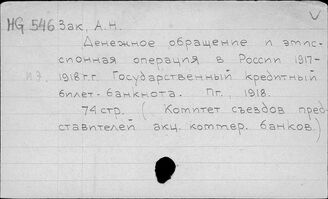 HG 546 Зак, А.Н.
Денежное обращение и эмис-
сионная операция в России 1917-
1918 г.г. Государственный кредитный
билет - банкнота. Пг., 1918.
74 стр. (Комитет съездов пред-
ставителей акц. коммер. банков.)